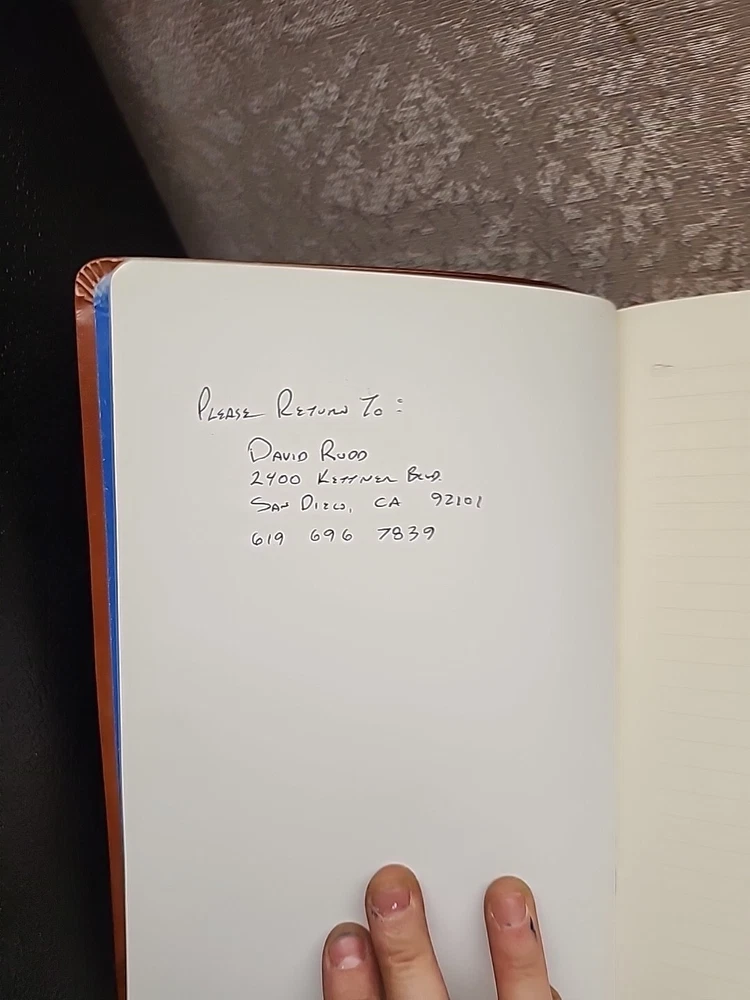 PLEASE RETURN TO :
DAVID RUDD
2400 KETTNER BLVD.
SAN DIEGO, CA 92101
619 696 7839